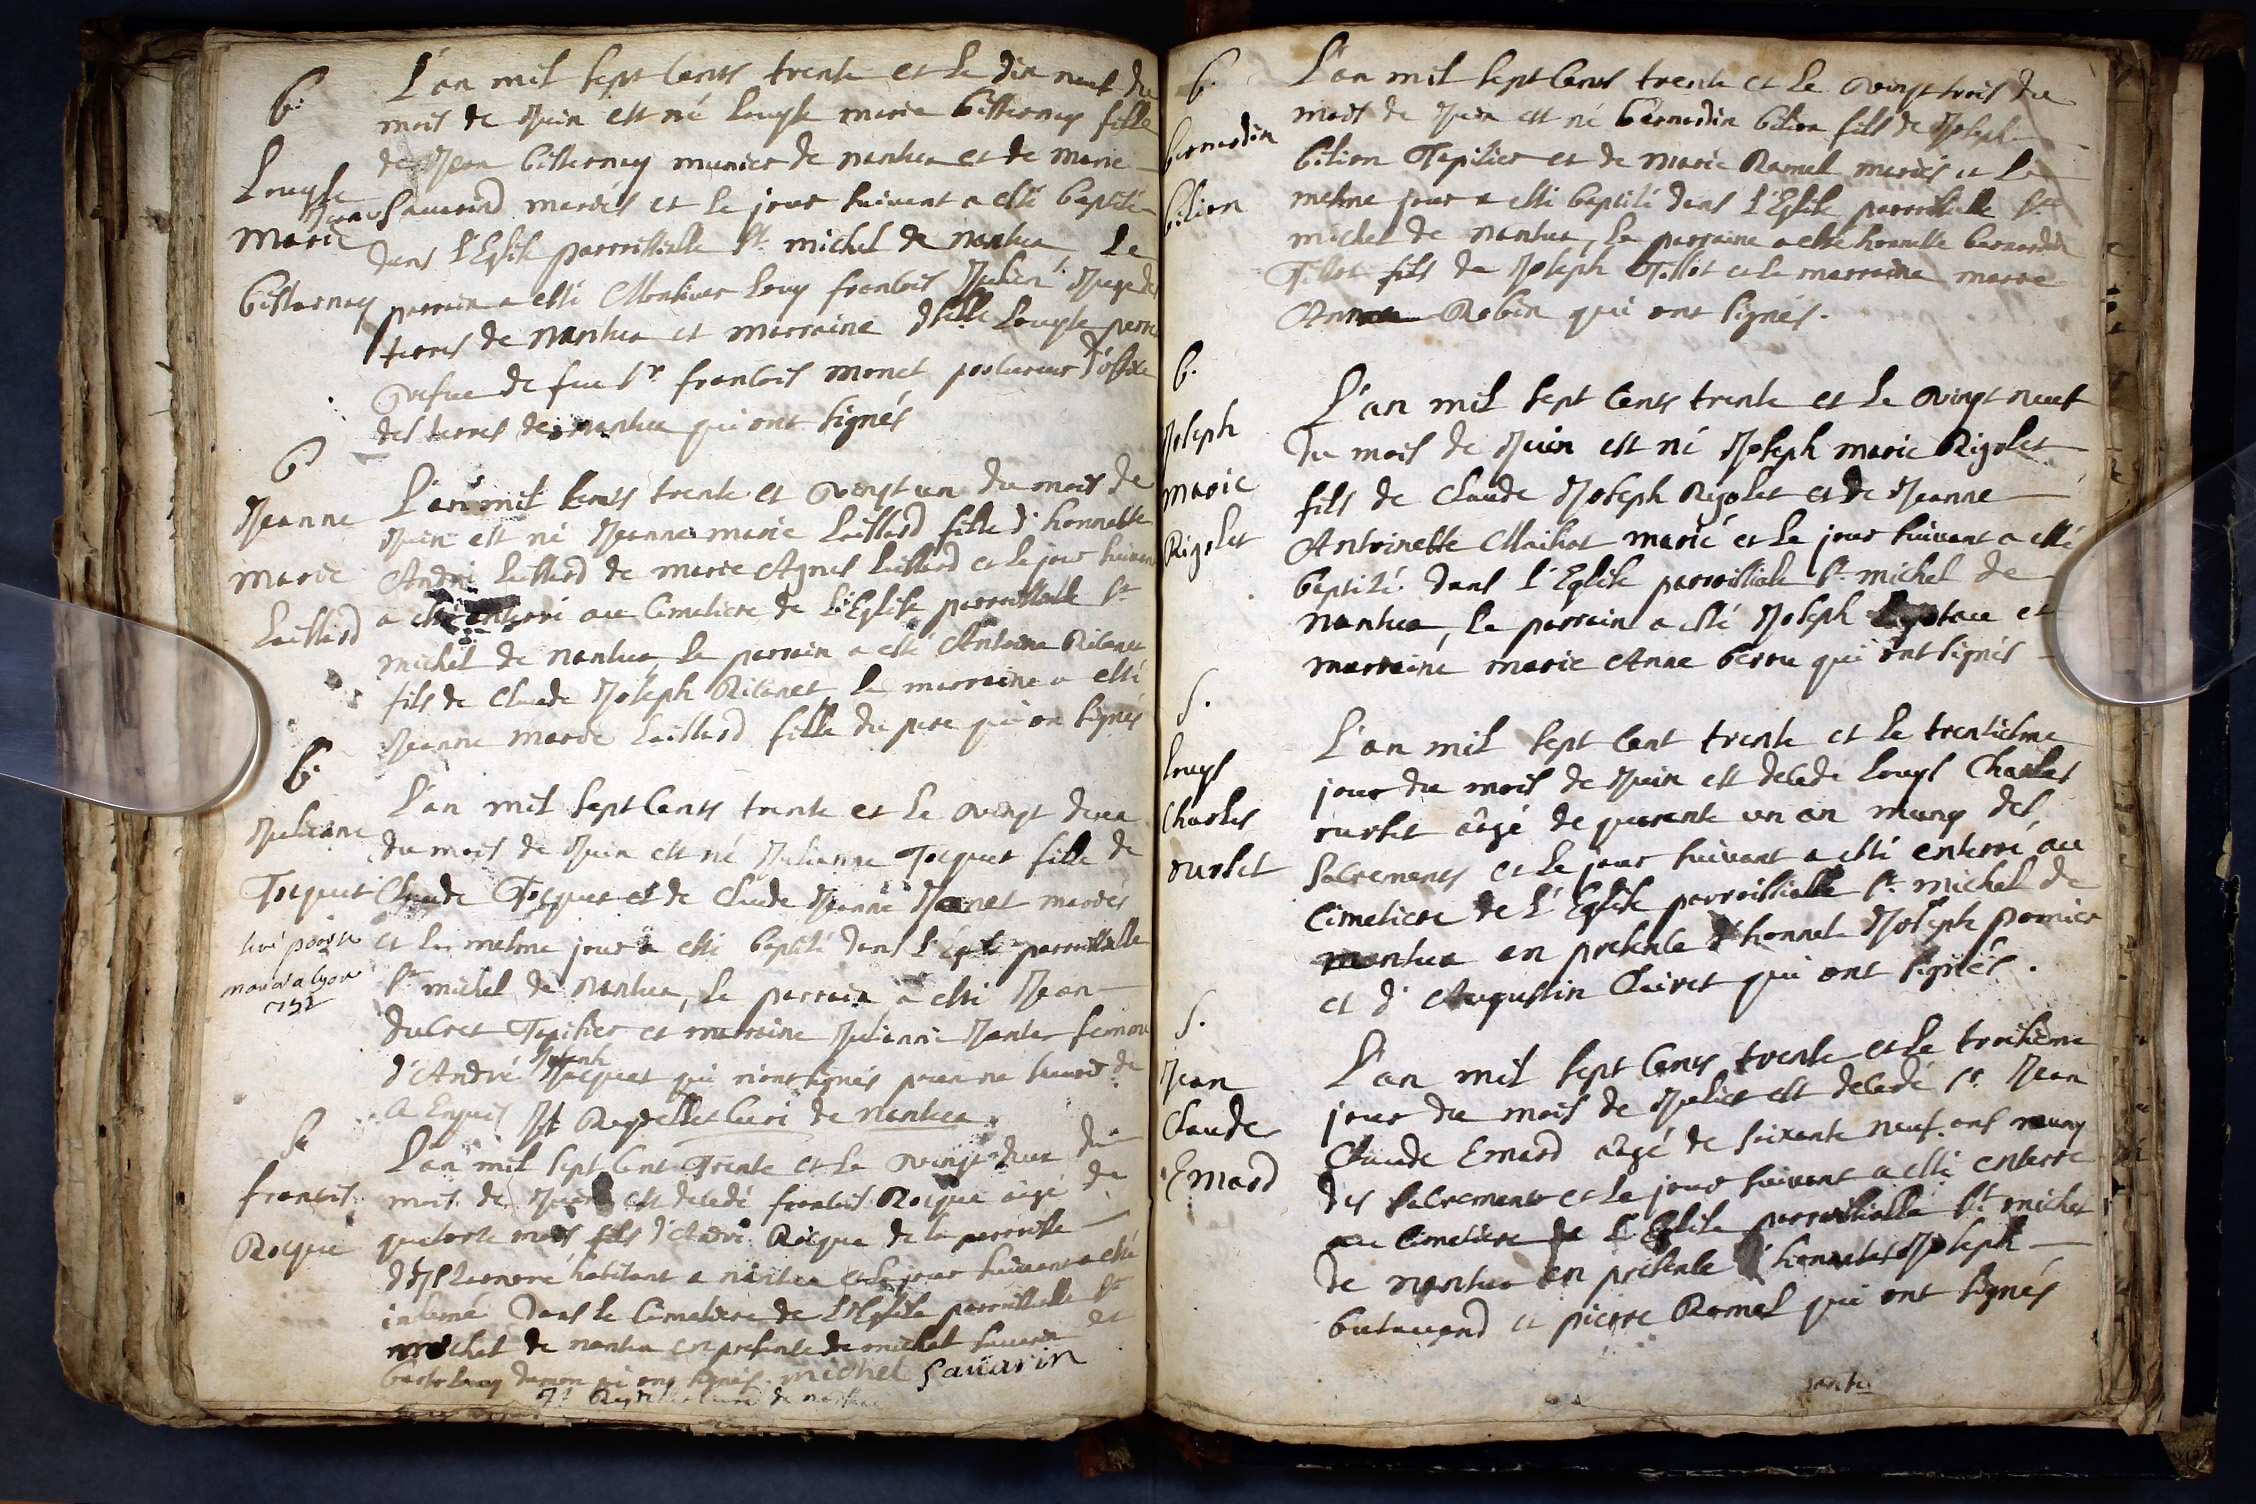 b.
Louyse
Marie
bisternay
L'an mil sept cents trente et le dix neuf du
mois de Juin est né Louyse marie bisternay fille
de Jean bisternay munier de nantua et de marie
Savarind mariés et le jour suivant a esté baptisé
dans l'Eglise parroissialle St michel de nantua, Le
parrain a esté Monsieur Louy francois Julien Juge des
terres de nantua et marraine dlle Louyse
vefue de feu sr francois monet procureur d'office
des terres de nantua qui ont signés
b
Jeanne
marie
Laillard
L'an mil cents trente et vingt un du mois de
Juin est né Jeanne marie Laillard fille d'honneste
André Laillard de marie Agnes Laillard et le jour suivant
a esté enterré au cimetiere de L'Eglise parroissialle St
michel de nantua le parrain a esté Antoine Ritanet
fils de Claude Joseph Ritanet la marraine a esté
Jeanne marie Laillard fille du pere qui on signés
b.
Julienne
Tocquet
L'an mil sept cents trente et le vingt deux
du mois de Juin est né Julienne Tocquet fille de
Claude Tocquet et de Claude Jeanne Janet mariés
et le mesme jour a esté baptisé dans l'Eglise parroissialle
St michel de nantua, le parrain a esté Jean
ducret Tapissier et marraine Julienne Janter femme
d'André Jacquet qui n'ont signés pour ne scavoir de
ce Enquis Jt Reydellet curé de nantua.
S.
francois
Rocque
L'an mil sept cent Trente et le vingt deux du
mois de Juin est decedé francois Rocque aagé de
quatorse mois fils d'André Rocque de la parroisse
habitant a nantua et le jour suivant a esté
inhumé dans le cimetiere de L'Eglise parroissialle St
michel de nantua en presence de michel savarin et
qui ont signés. michel Savarin
Jt Reydellet curé de nantua
b.
bernardin
bilion
L'an mil sept cents trente et le vingt trois du
mois de Juin est né bernardin bilion fils de Joseph
bilion Tapissier et de marie Ramel mariés et le
mesme jour a esté baptisé dans l'Eglise parroissialle St
michel de nantua, le parraine a esté honneste bernardin
Tillot fils de Joseph Tillot et la marraine marie
Anne Robin qui ont signés.
b.
Joseph
marie
Rigolet
L'an mil sept cents trente et le vingt neuf
du mois de Juin est né Joseph marie Rigolet
fils de Claude Joseph Rigolet et de Jeanne
Antoinette Maihot marié et le jour suivant a esté
baptisé dans l'Eglise parroissiale St michel de
nantua, le parrain a esté Joseph et
marraine marie Anne berou qui ont signés
S.
Louys
Charles
rurset
L'an mil sept cent trente et le trentiesme
jour du mois de Juin est decedé Louys Charles
rurset âgé de quarente un an muny des
Sacrements et le jour suivant a esté enterré au
cimetiere de L'Eglise parroissialle St michel de
nantua en presence d'honnet Joseph pomier
et d'Augustin Clairet qui ont signés.
S.
Jean
Claude
Emard
L'an mil sept cents trente et le troisieme
jour du mois de Juliet est decedé Sr Jean
Claude Emard âgé de soixante neuf ans muny
des sacrements et le jour suivant a esté enterré
au cimetiere de L'Eglise parroissialle St michel
de nantua en presence d'honnestes Joseph
butavand et pierre Ramel qui ont signés